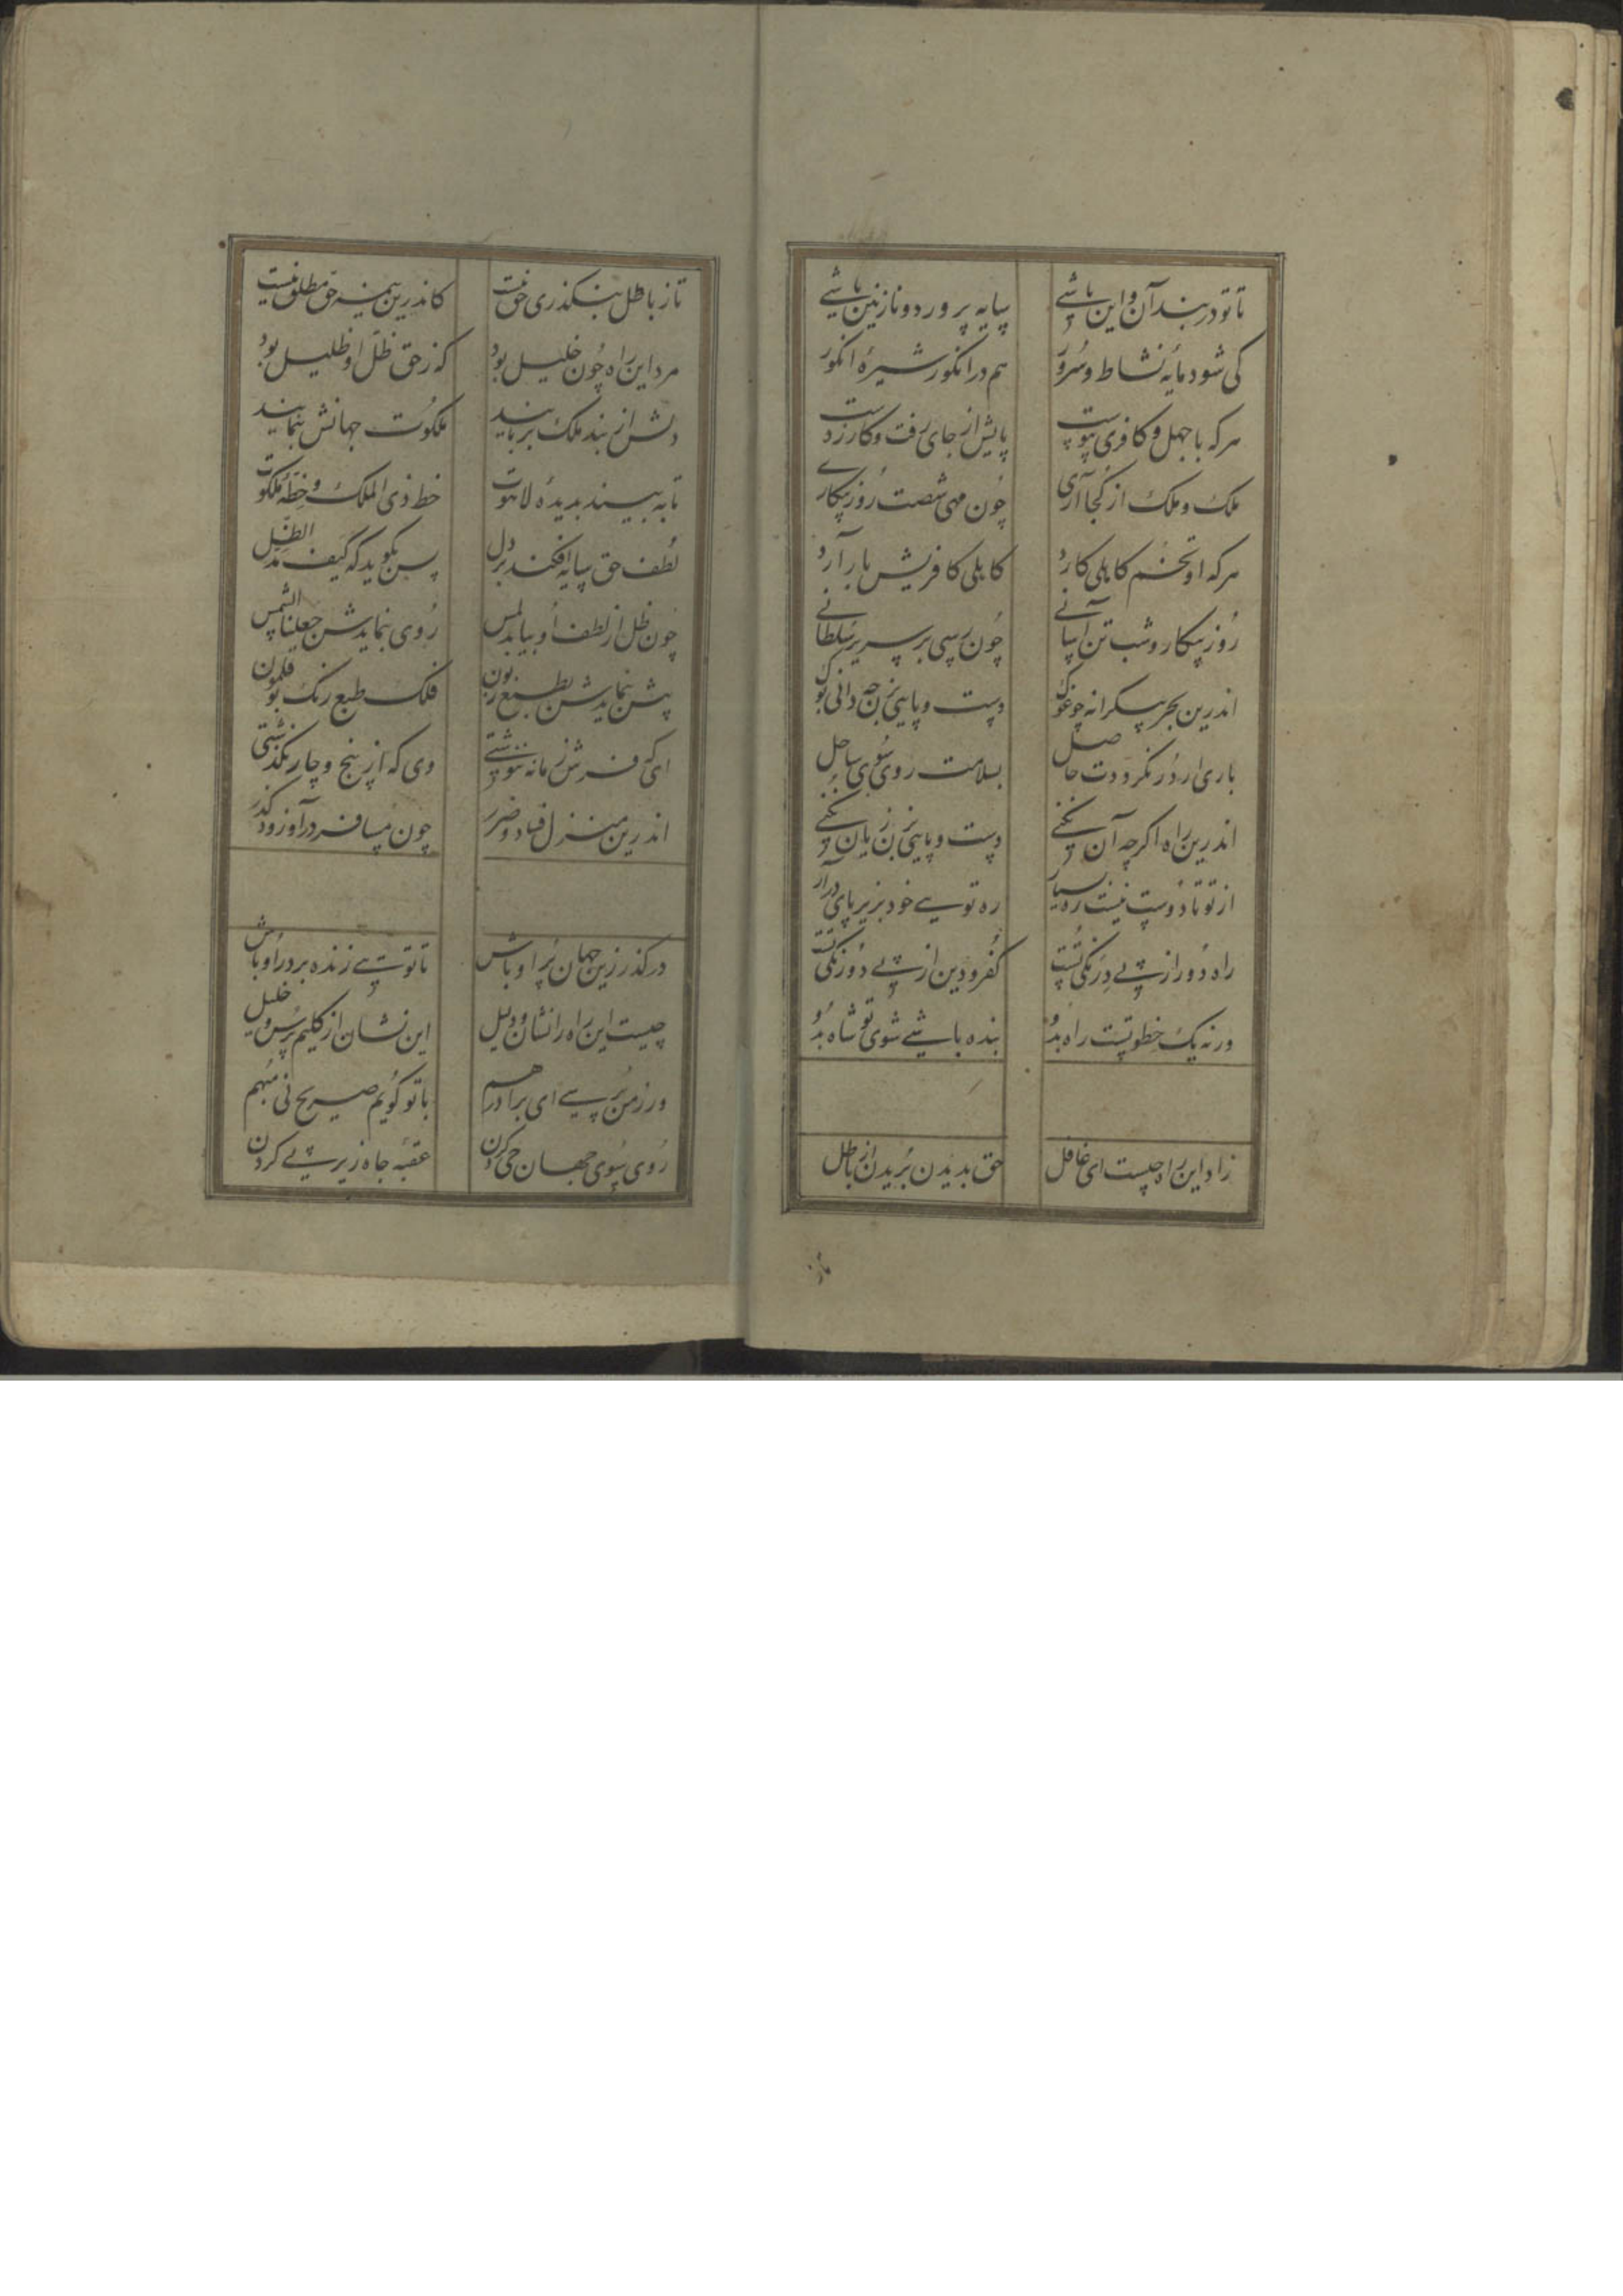 تا تو در بند آن و این باشی سایه پرورد و نازنین باشی
کی شود مایهٔ نشاط و سُرور هم در انکور شیرهٔ انکور
هرکه با جهل و کافری پیوست پایش از جای رفت و کار ز دست
ملک و ملک از کُجا آری چُون مهی شصت رُوز بیکاری
هرکه او تخم کاهلی کارد کاهلی کافریش بار آرد
رُوز بیکار و شب تن آسانی چُون رسی بر سریر سُلطانی
اندرین بحر بیکرانه چو غوک دست و پایی بزن چه دانی بوک
باری ار دُر نکرددت حاصل بسلامت روی سُوی ساحل
اندرین راه اکرچه آن نکنی دست و پایی بزن زیان نکنی
از تو تا دوست نیست ره بسیار ره تویی خود بزیر پای درآر
راه دُور از پی درنکی تُست کُفر و دین از پی دُورنکی تُست
ورنه یک خطوتیست راه بدُو بنده باشی شوی تو شاه بدُو
زاد این راه چیست ای غافل حق بدیدن بُریدن از باطل
تا ز
تا ز باطل بنکذری حق نیست کاندرین نیمه حق مطلق نیست
مرد این راه چُون خلیل بود که ز حق ظلّ او ظلیل بود
دلش از بند ملک بربایند ملکُوت جهانش بنمایند
تا به بیند بدیدهٔ لاهُوت خط ذی الملک و خطّهٔ ملکوت
لُطف حق سایه افکند بر دل پس بکوید که کیف مدّ الظّل
چُون ظل از لطف او بیابد لمس رُوی بنمایدش جعلنا الشمس
پیش بنمایدش بطبع زبون فلک طبع رنک بوقلمون
ای که فرش زمانه ننوشتی وی که از پنج و چار نکذشتی
اندرین منزل فساد و ضرر چون مسافر درآ و زود کذر
درکذر زین جهان پُر اوباش تا تویی زنده بر در او باش
چیست این راه را نشان و دلیل این نشان از کلیم پرس و خلیل
ور ز من پُرسی ای برادر هم با تو کویم صریح نی مُبهم
رُوی سُوی جهان حی کردن عقبهٔ جاه زیر پی کردن